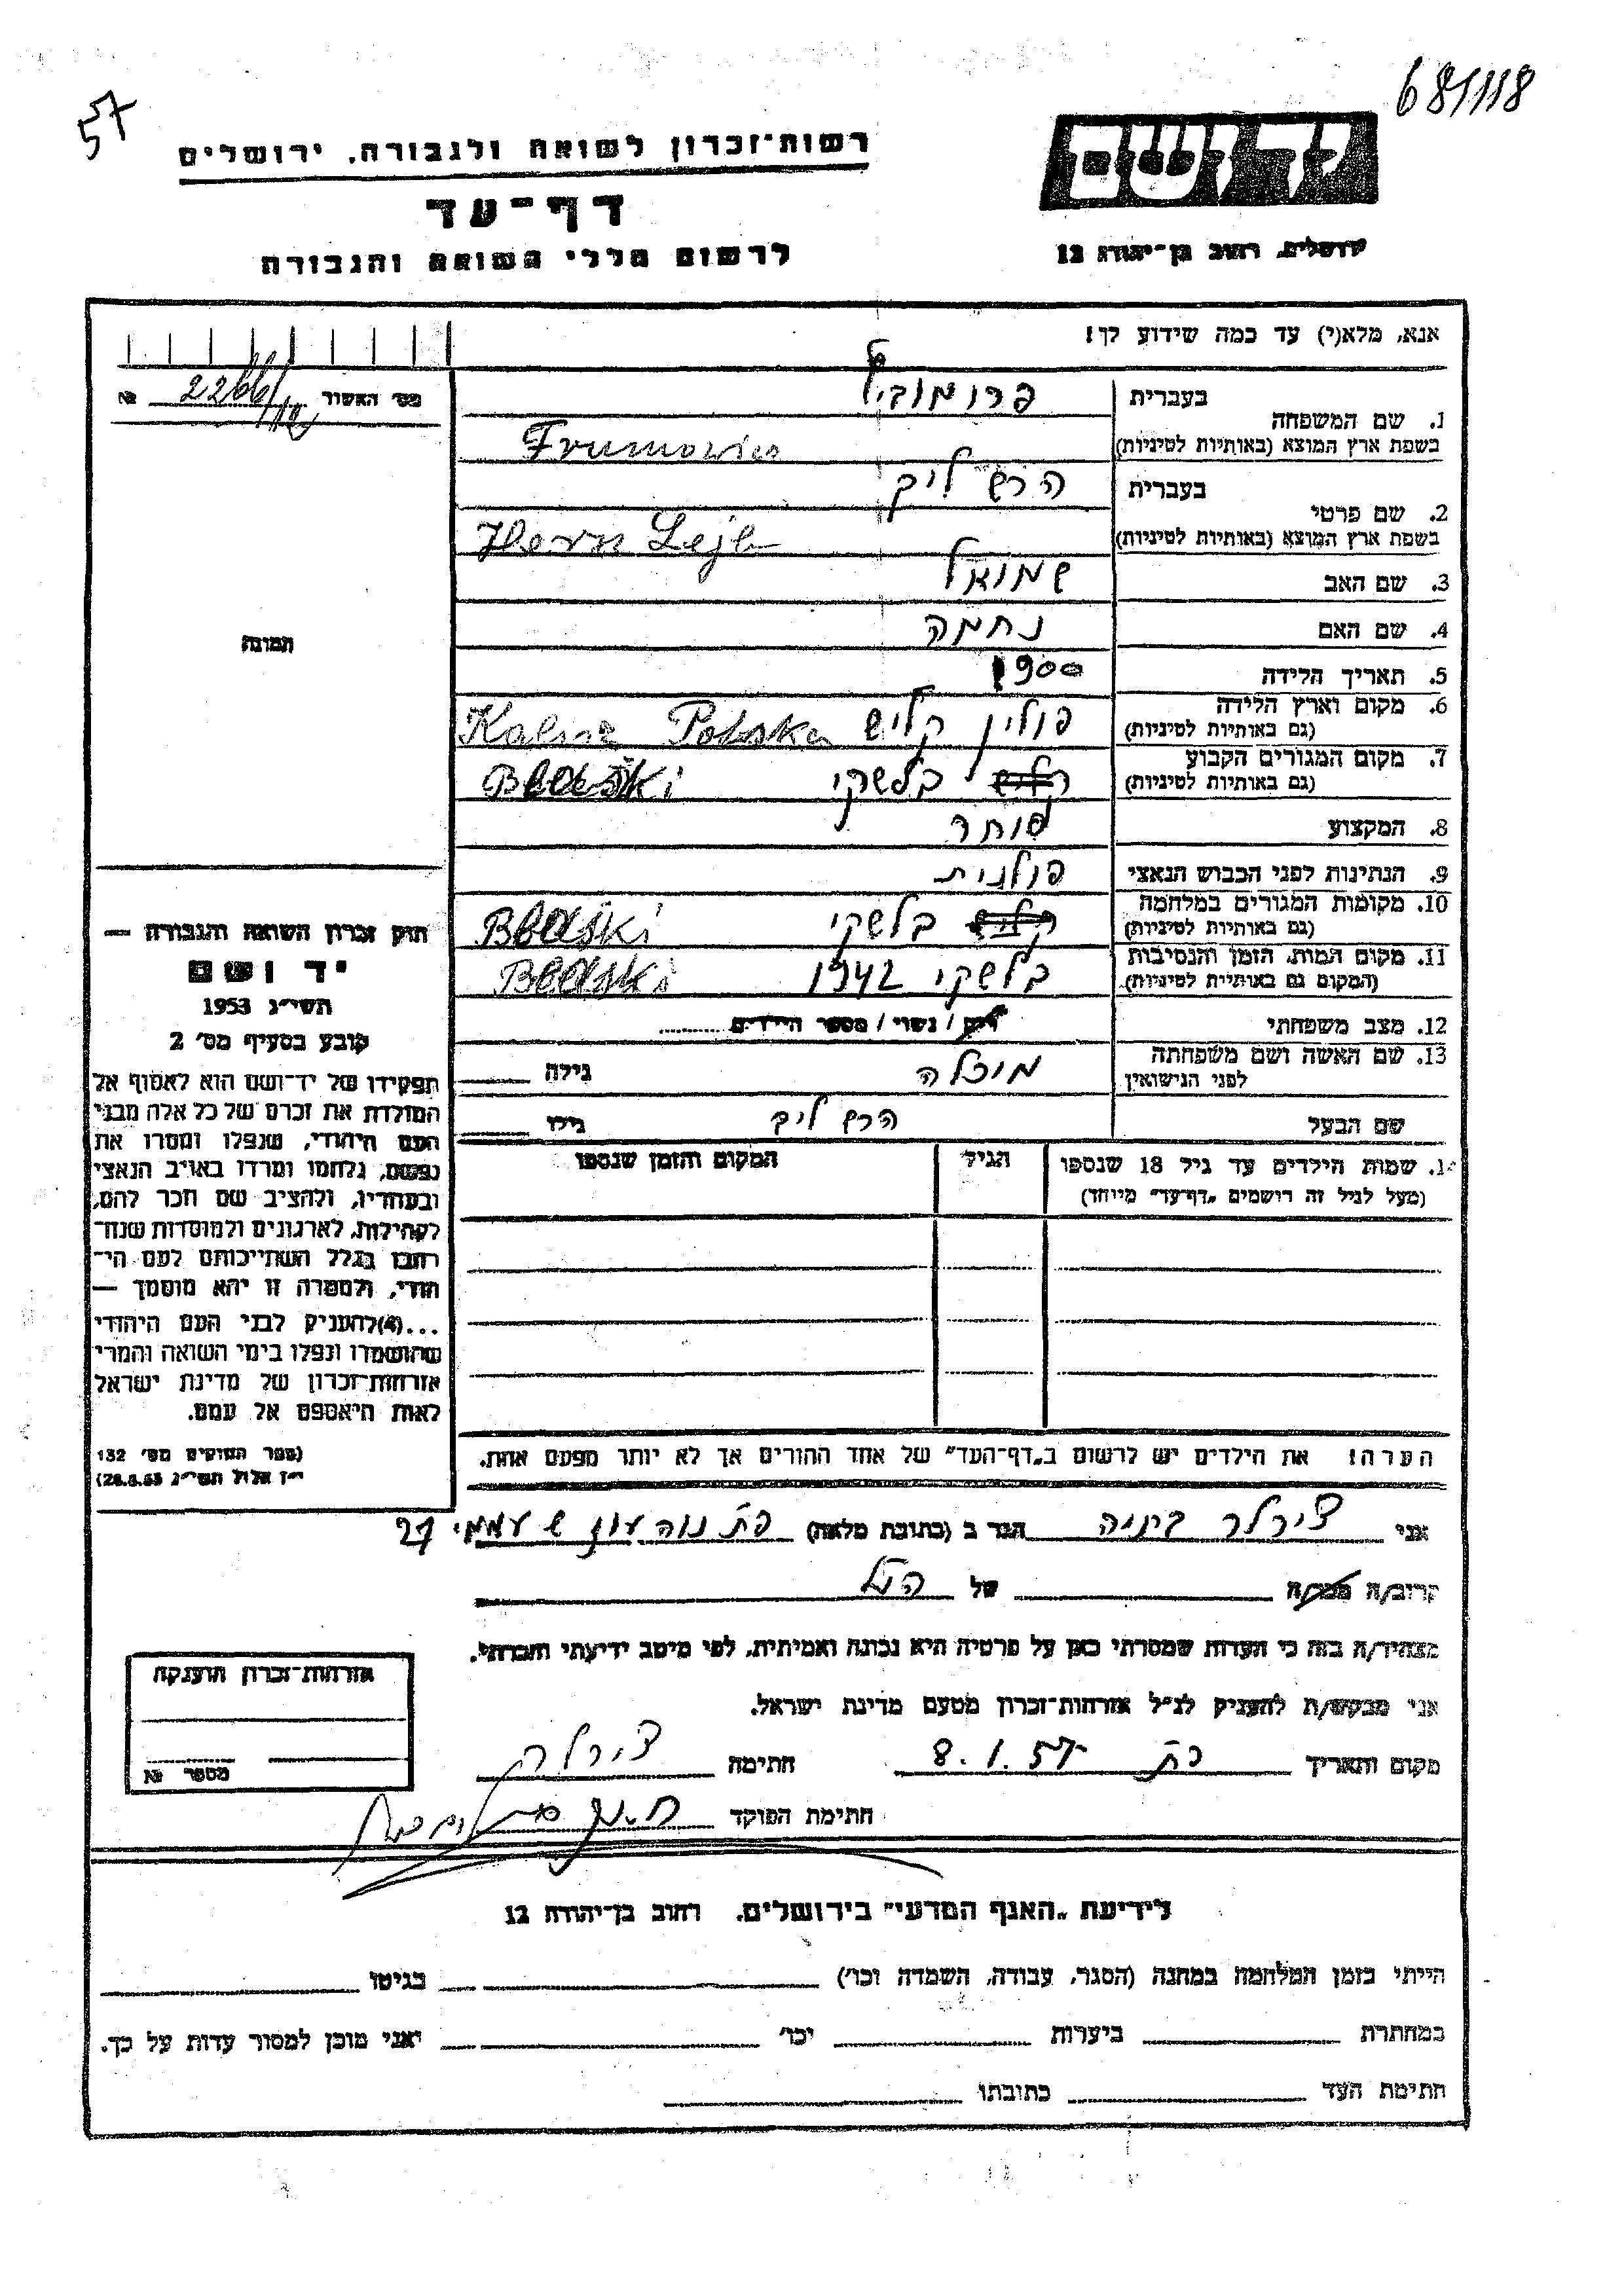 57
681118
רשות־זכרון לשואה ולגבורה, ירושלים
יד ושם
דף־עד
לרשום חללי השואה והגבורה
ירושלים, רחוב בן־יהודה 12
אנא, מלא(י) עד כמה שידוע לך!
מס׳ האשור 2266/ №
1. שם המשפחה
בעברית פרומוביץ
בשפת ארץ המוצא (באותיות לטיניות) Frumowicz
2. שם פרטי
בעברית הרש ליב
בשפת ארץ המוצא (באותיות לטיניות) Hersz Lejb
3. שם האב שמואל
4. שם האם נחמה
5. תאריך הלידה 1900
6. מקום וארץ הלידה פולין קליש Kalisz Polska
(גם באותיות לטיניות)
7. מקום המגורים הקבוע קליש בלשקי Błaski
(גם באותיות לטיניות)
8. המקצוע סוחר
9. הנתינות לפני הכבוש הנאצי פולנית
10. מקומות המגורים במלחמה קליש בלשקי Błaski
(גם באותיות לטיניות)
11. מקום המות, הזמן והנסיבות בלשקי 1942 Błaski
(המקום גם באותיות לטיניות)
12. מצב משפחתי רווק / נשוי / מספר הילדים
13. שם האשה ושם משפחתה
לפני הנישואין גילה
שם הבעל הרש ליב גילו
14. שמות הילדים עד גיל 18 שנספו הגיל המקום והזמן שנספו
(מעל לגיל זה רושמים „דף־עד״ מיוחד)
הערה! את הילדים יש לרשום ב„דף־העד״ של אחד ההורים אך לא יותר מפעם אחת.
תמונה
חוק זכרון השואה והגבורה —
יד ושם
תשי״ג 1953
קובע בסעיף מס׳ 2
תפקידו של יד־ושם הוא לאסוף אל
המולדת את זכרם של כל אלה מבני
העם היהודי, שנפלו ומסרו את
נפשם, נלחמו ומרדו באויב הנאצי
ובעוזריו, ולהציב שם וזכר להם,
לקהילות, לארגונים ולמוסדות שנח־
רבו בגלל השתייכותם לעם הי־
הודי, ולמטרה זו יהא מוסמך —
...(4) להעניק לבני העם היהודי
שהושמדו ונפלו בימי השואה והמרי
אזרחות־זכרון של מדינת ישראל
לאות היאספם אל עמם.
(ספר החוקים מס׳ 132
י״ז אלול תשי״ג 28.8.53)
אני צירלר הגר ב (כתובת מלאה) פת נוה עוז ש עממי 27
קרוב/ה מכר/ה של הנ״ל
מצהיר/ה בזה כי העדות שמסרתי כאן על פרטיה היא נכונה ואמיתית, לפי מיטב ידיעתי והכרתי.
אני מבקש/ת להעניק לנ״ל אזרחות־זכרון מטעם מדינת ישראל.
מקום ותאריך פת 8.1.57 חתימה צירלר
חתימת הפוקד
אזרחות־זכרון הוענקה
מספר №
לידיעת „האגף המדעי״ בירושלים, רחוב בן־יהודה 12
הייתי בזמן המלחמה במחנה (הסגר, עבודה, השמדה וכו׳) בגיטו
במחתרת ביערות וכו׳ ואני מוכן למסור עדות על כך.
חתימת העד כתובתו